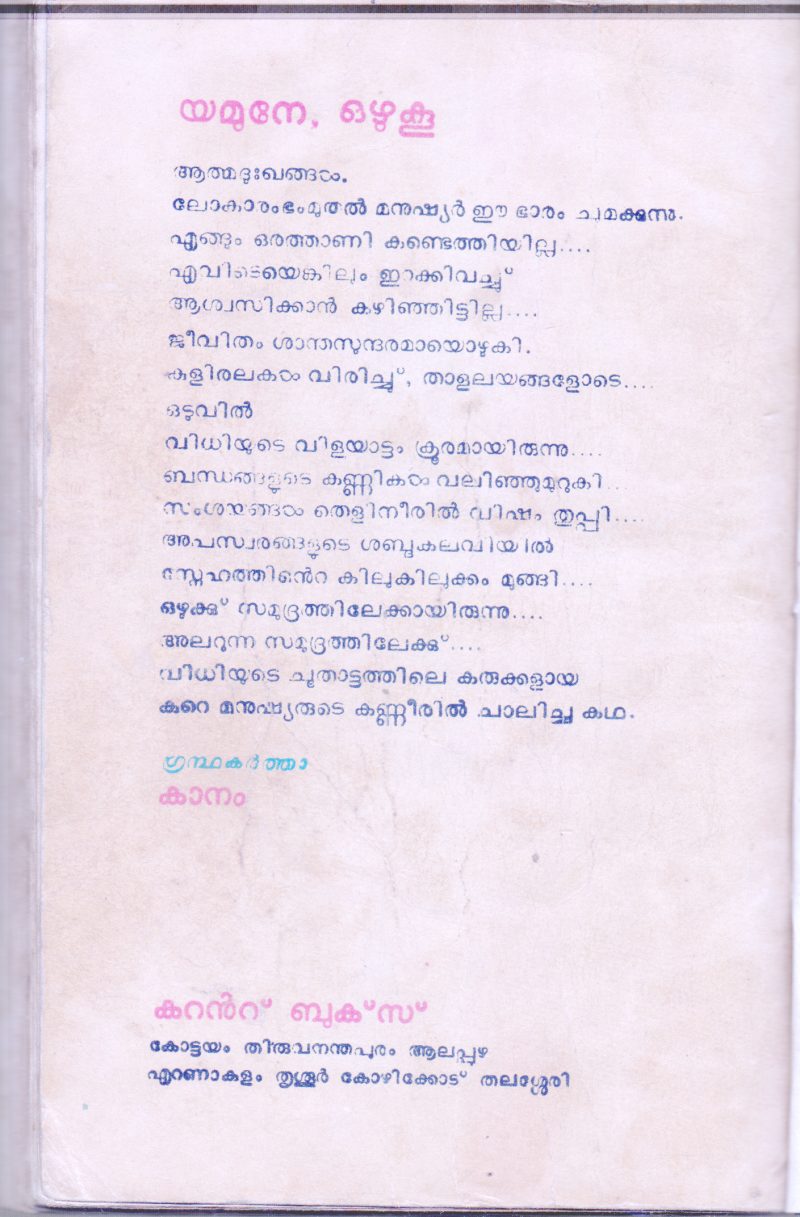 യമുനേ, ഒഴുകൂ
ആത്മദുഃഖങ്ങൾ.
ലോകാരംഭംമുതൽ മനുഷ്യർ ഈ ഭാരം ചുമക്കുന്നു.
എങ്ങും ഒരത്താണി കണ്ടെത്തിയില്ല....
എവിടെയെങ്കിലും ഇറക്കിവച്ചു്
ആശ്വസിക്കാൻ കഴിഞ്ഞിട്ടില്ല....
ജീവിതം ശാന്തസുന്ദരമായൊഴുകി.
കുളിരലകൾ വിരിച്ചു്, താളലയങ്ങളോടെ....
ഒടുവിൽ
വിധിയുടെ വിളയാട്ടം ക്രൂരമായിരുന്നു....
ബന്ധങ്ങളുടെ കണ്ണികൾ വലിഞ്ഞുമുറുകി...
സംശയങ്ങൾ തെളിനീരിൽ വിഷം തുപ്പി....
അപസ്വരങ്ങളുടെ ശബ്ദകലവിയിൽ
സ്നേഹത്തിൻെറ കിലുകിലുക്കം മുങ്ങി....
ഒഴുക്കു് സമുദ്രത്തിലേക്കായിരുന്നു....
അലറുന്ന സമുദ്രത്തിലേക്കു്....
വിധിയുടെ ചൂതാട്ടത്തിലെ കരുക്കളായ
കുറെ മനുഷ്യരുടെ കണ്ണീരിൽ ചാലിച്ച കഥ.
ഗ്രന്ഥകർത്താ
കാനം
കറൻറ് ബുക്സ്
കോട്ടയം തിരുവനന്തപുരം ആലപ്പുഴ
എറണാകുളം തൃശ്ശൂർ കോഴിക്കോട് തലശ്ശേരി